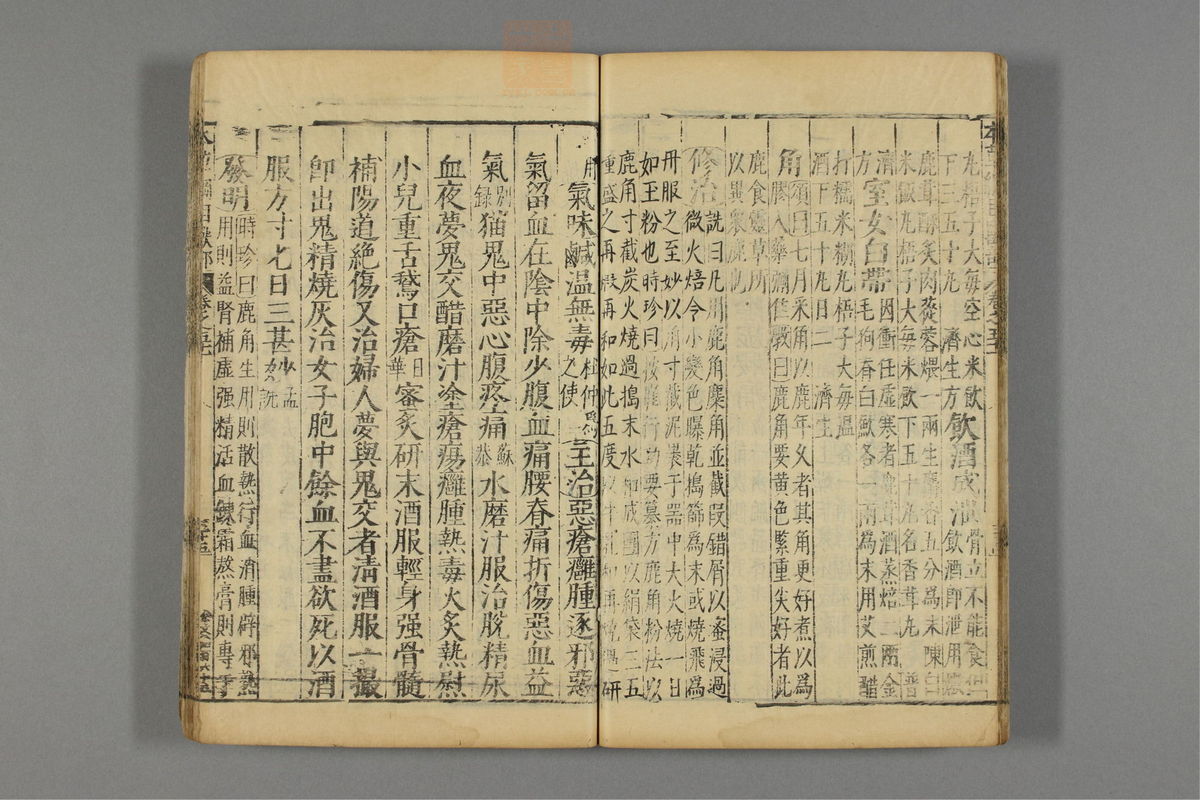 丸梧子大每空心米飲
下三五十丸 濟生方 飲酒成泄 骨立不能食但飲酒即泄用嫩
鹿茸酥炙肉蓯蓉煨一兩生麝香五分為末陳白
米飯丸梧子大每米飲下五十丸名香茸丸 普
濟方 室女白帶 因衝任虛寒者鹿茸酒蒸焙二兩金毛狗脊白蘞各一兩為末用艾煎醋
打糯米糊丸梧子大每溫
酒下五十丸日二 濟生
角 頌曰七月采角以鹿年久者其角更好煮以為膠入藥彌佳斅曰鹿角要黃色緊重尖好者此
鹿食靈草所
以異眾鹿也
修治 詵曰凡用鹿角麋角並截段錯屑以蜜浸過微火焙令小變色曝乾搗篩為末或燒飛為
丹服之至妙以角寸截泥裹于器中大火燒一日
如玉粉也時珍曰按崔行功纂要方鹿角粉法以
鹿角寸截炭火燒過搗末水和成團以絹袋三五
重盛之再煅再和如此五度以牛乳和再燒過研
用 氣味鹹溫無毒 杜仲為之使 主治惡瘡癰腫逐邪惡
氣留血在陰中除少腹血痛腰脊痛折傷惡血益
氣 別錄 猫鬼中惡心腹疼痛 蘇恭 水磨汁服治脫精尿
血夜夢鬼交醋磨汁塗瘡瘍癰腫熱毒火炙熱慰
小兒重舌鵞口瘡 日華 蜜炙研末酒服輕身强骨髓
補陽道絕傷又治婦人夢與鬼交者清酒服一撮
即出鬼精燒灰治女子胞中餘血不盡欲死以酒
服方寸匕日三甚妙 孟詵
發明 時珍曰鹿角生用則散熱行血消腫辟邪熟用則益腎補虛强精活血鍊霜熬膏則專于